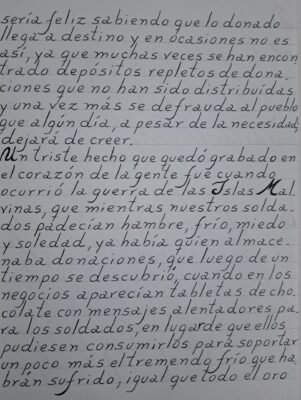 sería feliz sabiendo que lo donado
llega a destino y en ocasiones no es
así, ya que muchas veces se han encon
trado depósitos repletos de dona_
ciones que no han sido distribuídas
y una vez más se defrauda al pueblo
que algún día, a pesar de la necesidad,
dejará de creer.
Un triste hecho que quedó grabado en
el corazón de la gente fué cuando
ocurrió la guerra de las Islas Mal_
vinas, que mientras nuestros solda_
dos padecían hambre, frío, miedo
y soledad, ya había quien almace_
naba donaciones, que luego de un
tiempo se descubrió, cuando en los
negocios aparecían tabletas de cho_
colate con mensajes alentadores pa_
ra los soldados, en lugar de que ellos
pudiesen consumirlos para soportar
un poco más el tremendo frío que ha_
brán sufrido, igual que todo el oro